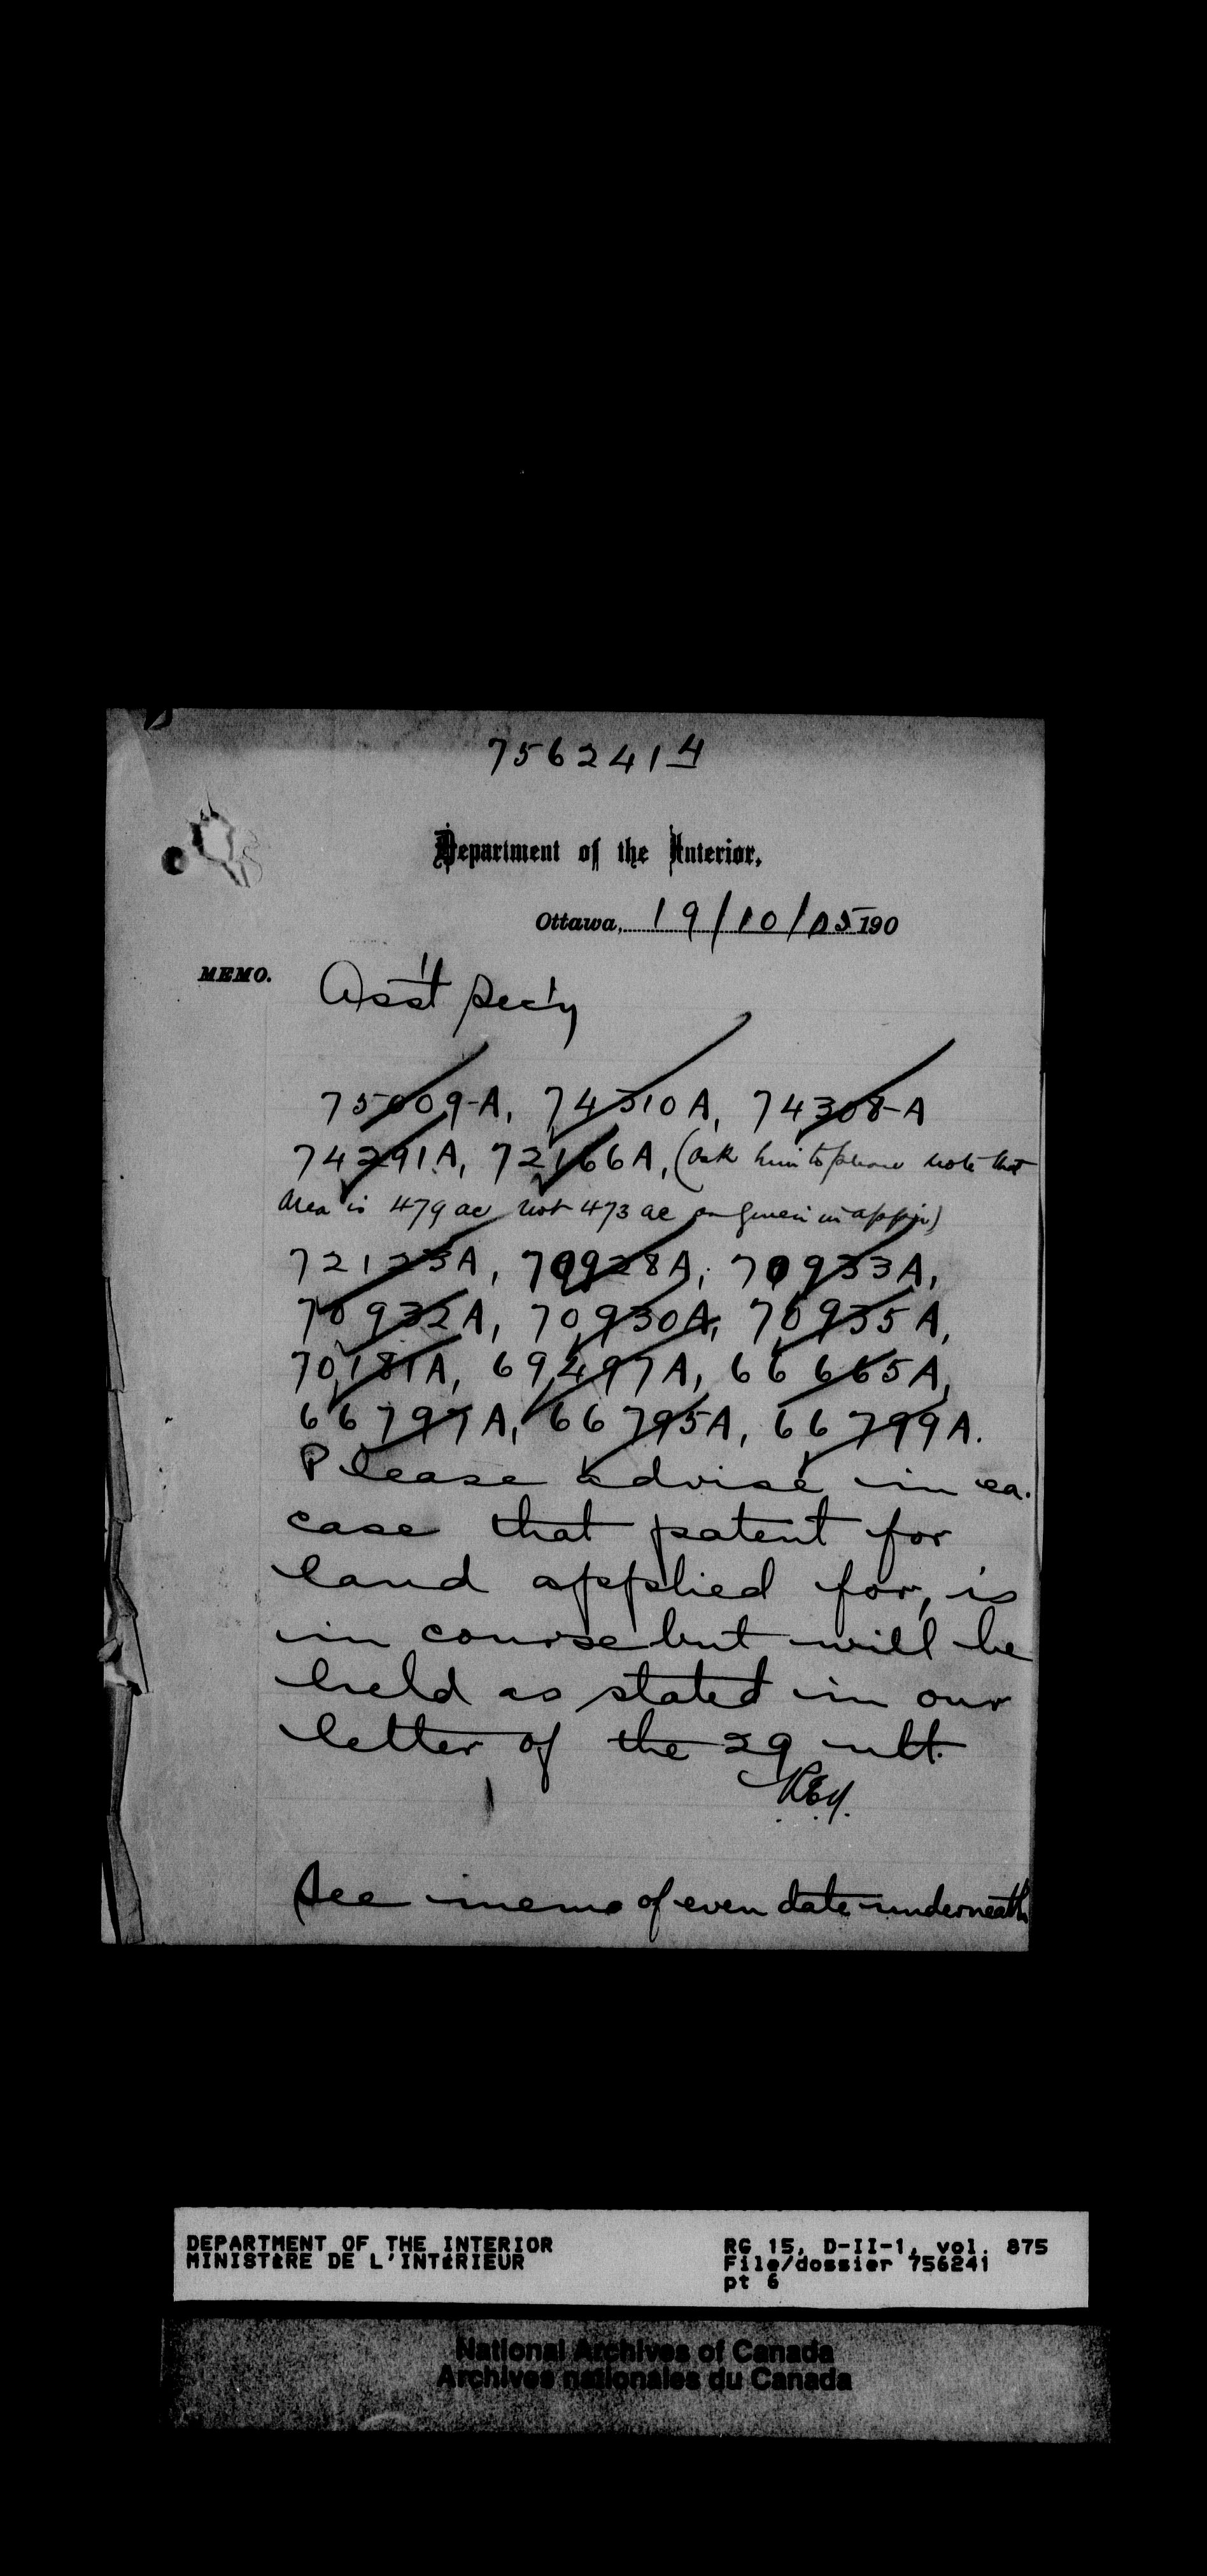 756241 4
Department of the Interior,
Ottawa, 19/10/05 190
MEMO.
Ass't Sec'y
75009-A, 74310A, 74308-A
74291A, 72166A, (ask him to please note that
area is 479 ac not 473 ac as given in app'n)
72123A, 70928A, 70933A,
70932A, 70930A, 70935A,
70181A, 69497A, 66665A,
66797A, 66795A, 66799A.
Please advise in ea.
case that patent for
land applied for, is
in course but will be
held as stated in our
letter of the 29 ult.
See memo of even date underneath
DEPARTMENT OF THE INTERIOR
MINISTÈRE DE L'INTÉRIEUR
RG 15, D-II-1, vol. 875
File/dossier 756241
pt 6
National Archives of Canada
Archives nationales du Canada